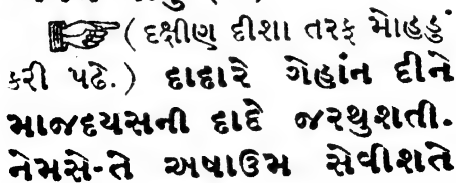 ☞(દક્ષીણ દીશા તરફ મોહડું
કરી પઢે.) દાદારે ગેહાંન દીને
માજદયસની દાદે જરથુશતી.
નેમસે-તે અષાઉમ સેવીશતે